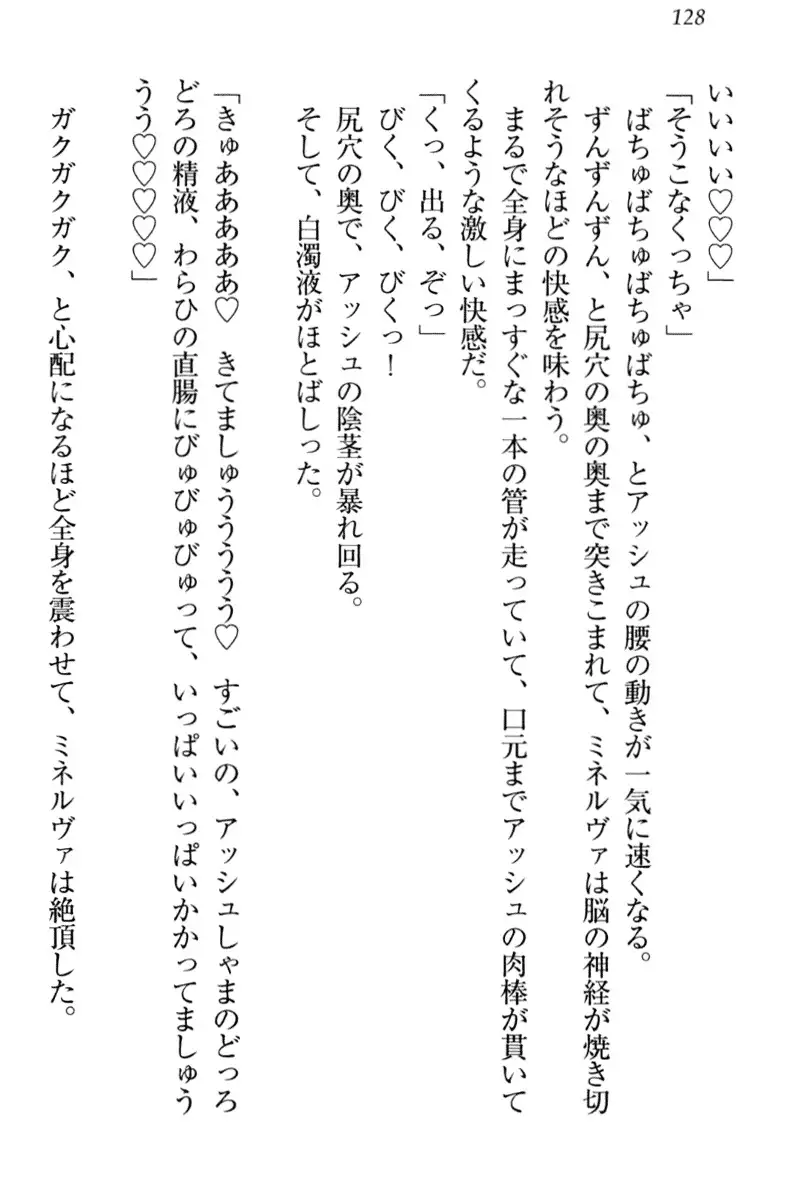 128
いいいい♡♡♡」
「そうこなくっちゃ」
ばちゅばちゅばちゅばちゅ、とアッシュの腰の動きが一気に速くなる。
ずんずんずん、と尻穴の奥の奥まで突きこまれて、ミネルヴァは脳の神経が焼き切
れそうなほどの快感を味わう。
まるで全身にまっすぐな一本の管が走っていて、口元までアッシュの肉棒が貫いて
くるような激しい快感だ。
「くっ、出る、ぞっ」
びく、びく、びくっ！
尻穴の奥で、アッシュの陰茎が暴れ回る。
そして、白濁液がほとばしった。
「きゅああああぁ♡　きてましゅうううう♡　すごいの、アッシュしゃまのどっろ
どろの精液、わらひの直腸にびゅびゅびゅって、いっぱいいっぱいかかってましゅう
うう♡♡♡♡♡」
ガクガクガク、と心配になるほど全身を震わせて、ミネルヴァは絶頂した。